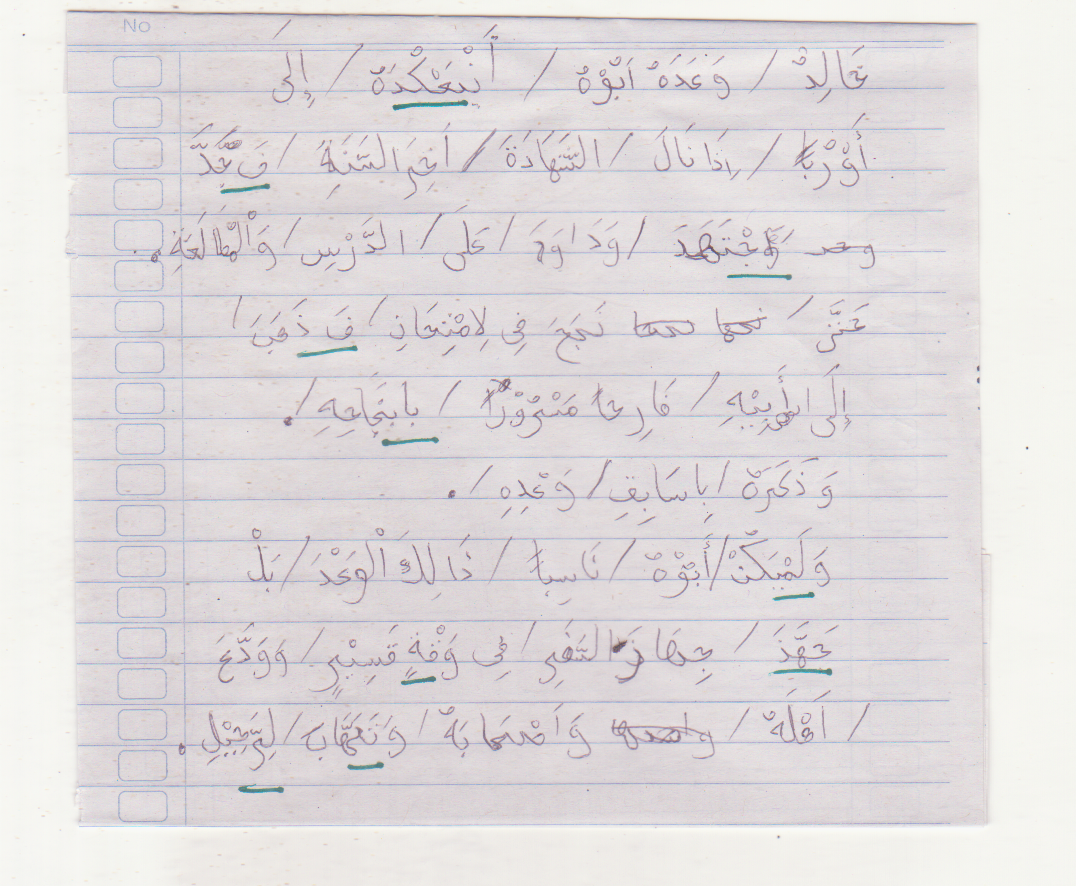 No
خَالِدْ / وَعَدَهُ اَبُوْهُ / أَنْيَبْعَكْدَهُ / إِلىَ
أَوْرُبَّا / اِذَا نَالَ / الشَّهَادَةَ / اَخِرَ السَّنَةِ / فَ جَدَّ
وَاجْتَهَدَ / وَدَاوَمَ / عَلَى / الدَّرْسِ / وَالْمُطَالَعَةِ .
حَتَّى / نَجَحَ فِى لِامْتِحَانِ / فَ ذَهَبَ /
إِلَى اَبِيْهِ / فَارِحًا مَسْرُوْرًا / بِابنَجَاحِهِ / .
وَذَكَرَهُ / بِاسَابِقِ / وَعْدِهِ / .
وَلَمْيَكُنْ / أَبُوْهُ / نَاسِيًا / ذَالِكَ الْوَعْدَ / بَلْ
جَهَّذَ / جِهَازَ السَّفَرِ / فِى وَقْةٍ قَسِيْرٍ / وَوَدَّعَ
/ اَهْلَهُ / وَاَصْحَابَهُ / وَتَهَّابَ / لِرَّحِيْلِ .